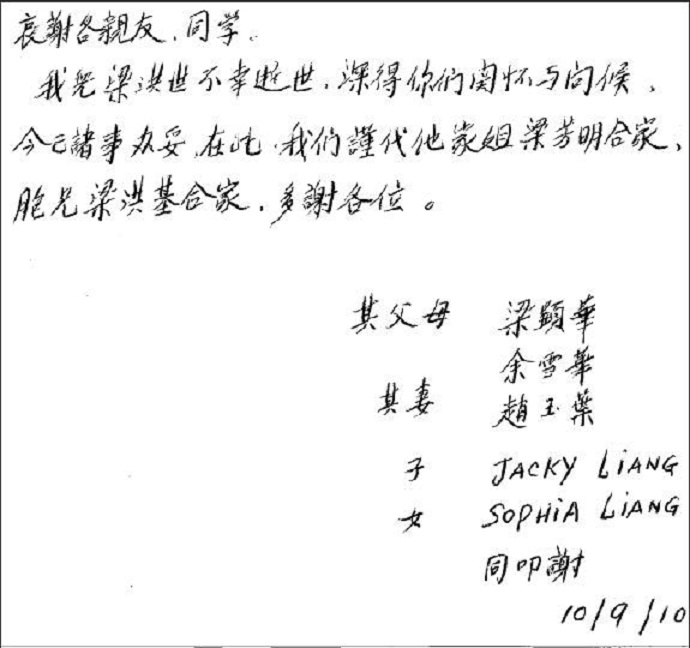 哀謝各親友、同学。
我兒梁洪世不幸逝世,深得你們関怀与问候,
今已諸事办妥,在此,我们謹代他家姐梁芳明合家,
胞兄梁洪基合家,多謝各位。
其父母 梁顕華
余雪華
其妻 趙玉葉
子 JACKY LiANG
女 SOPHiA LiANG
同叩謝
10/9/10